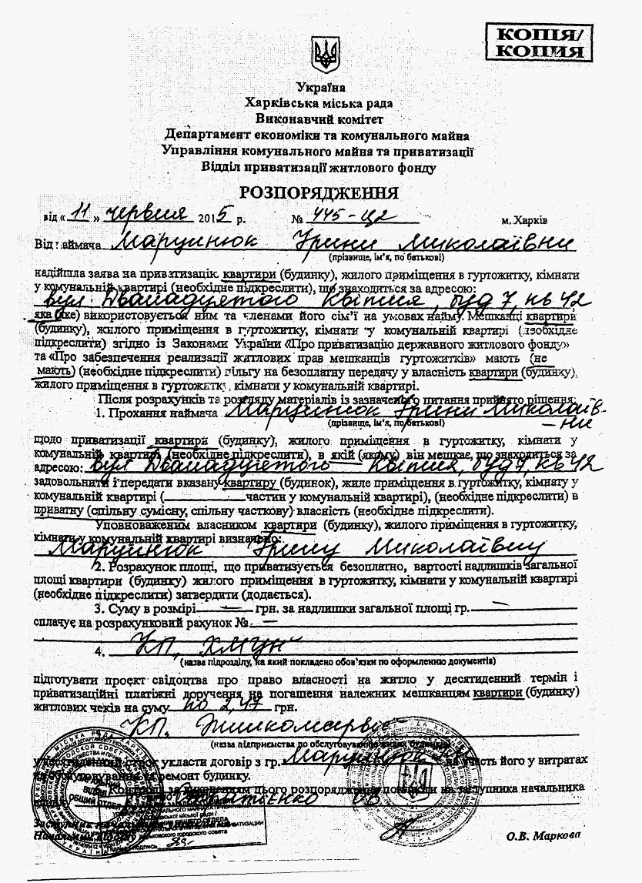 КОПІЯ/
КОПИЯ
Україна
Харківська міська рада
Виконавчий комітет
Департамент економіки та комунального майна
Управління комунального майна та приватизації
Відділ приватизації житлового фонду
РОЗПОРЯДЖЕННЯ
від « 11 » червня 2015 р. № 445-Ц2 м. Харків
Від наймача Марцинюк Ірини Миколаївни
(прізвище, ім'я, по батькові)
надійшла заява на приватизацію квартири (будинку), жилого приміщення в гуртожитку, кімнати
у комунальній квартирі (необхідне підкреслити), що знаходиться за адресою:
вул Дванадцятого Квітня, буд 7, кв 42
яка (яке) використовується ним та членами його сім'ї на умовах найму. Мешканці квартири
(будинку), жилого приміщення в гуртожитку, кімнати у комунальній квартирі (необхідне
підкреслити) згідно із Законами України «Про приватизацію державного житлового фонду»
та «Про забезпечення реалізації житлових прав мешканців гуртожитків» мають (не
мають) (необхідне підкреслити) пільгу на безоплатну передачу у власність квартири (будинку),
жилого приміщення в гуртожитку, кімнати у комунальній квартирі.
Після розрахунків та розгляду матеріалів із зазначеного питання прийнято рішення:
1. Прохання наймача Марцинюк Ірини Миколаїв-
ни
(прізвище, ім'я, по батькові)
щодо приватизації квартири (будинку), жилого приміщення в гуртожитку, кімнати у
комунальній квартирі (необхідне підкреслити), в якій (якому) він мешкає, що знаходиться за
адресою: вул Дванадцятого Квітня, буд 7, кв 42
задовольнити і передати вказану квартиру (будинок), жиле приміщення в гуртожитку, кімнату у
комунальній квартирі ( частин у комунальній квартирі), (необхідне підкреслити) в
приватну (спільну сумісну, спільну часткову) власність (необхідне підкреслити).
Уповноваженим власником квартири (будинку), жилого приміщення в гуртожитку,
кімнати у комунальній квартирі визначено:
Марцинюк Ірину Миколаївну
2. Розрахунок площі, що приватизується безоплатно, вартості надлишків загальної
площі квартири (будинку) жилого приміщення в гуртожитку, кімнати у комунальній квартирі
(необхідне підкреслити) затвердити (додається).
3. Суму в розмірі — грн. за надлишки загальної площі гр.
сплачує на розрахунковий рахунок № —
4. КП „ХМУН"
(назва підрозділу, на який покладено обов'язки по оформленню документів)
підготувати проект свідоцтва про право власності на житло у десятиденний термін і
приватизаційні платіжні доручення на погашення належних мешканцям квартири (будинку)
житлових чеків на суму по 2,47 грн.
КП. Жилкомсервіс
(назва підприємства по обслуговуванню жилих будинків)
строк укласти договір з гр. Марцинюк на участь його у витратах
на обслуговування та ремонт будинку.
Контроль за виконанням цього розпорядження покласти на заступника начальника
О.В. Маркова